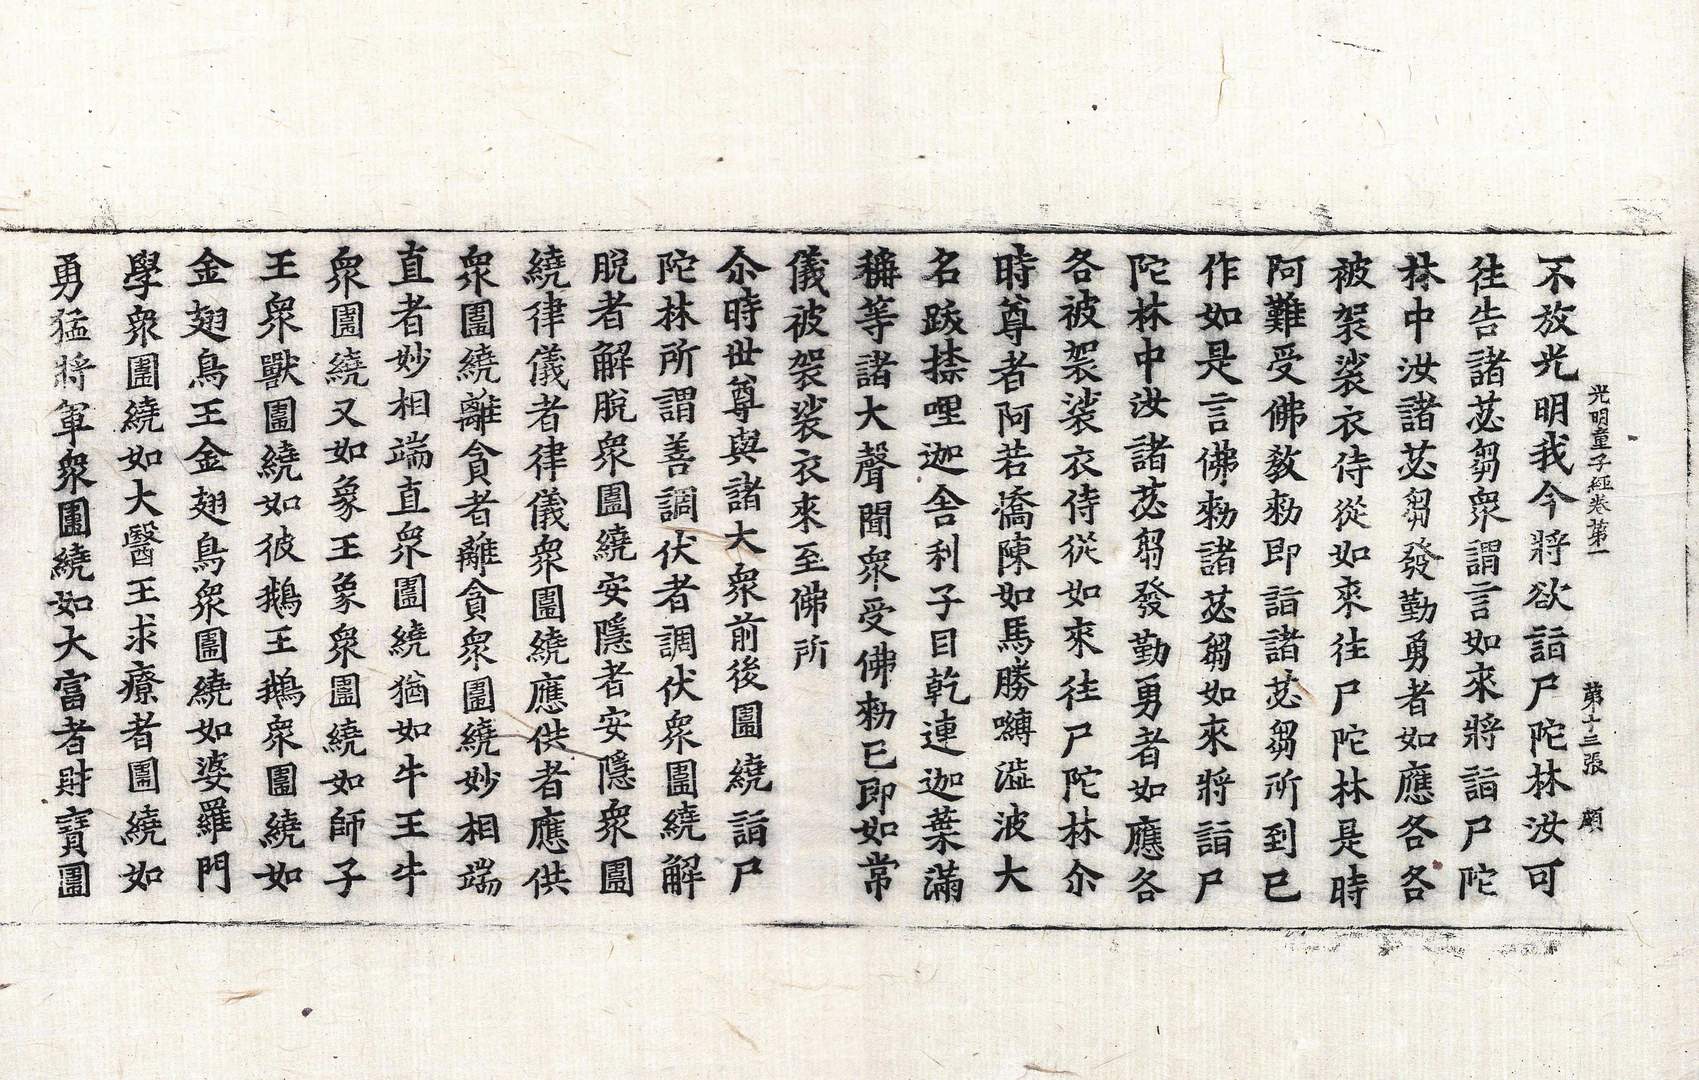 光明童子經卷第一 第十三張 願
不放光明我今將欲詣尸陀林汝可
往告諸苾芻眾謂言如來將詣尸陀
林中汝諸苾芻發勤勇者如應各各
被袈裟衣侍從如來往尸陀林是時
阿難受佛敎勑即詣諸苾芻所到已
作如是言佛勑諸苾芻如來將詣尸
陀林中汝諸苾芻發勤勇者如應各
各被袈裟衣侍從如來往尸陀林尒
時尊者阿若憍陳如馬勝嚩澁波大
名跋捺哩迦舍利子目乾連迦葉滿
稱等諸大聲聞眾受佛勑已即如常
儀被袈裟衣來至佛所
尒時世尊與諸大眾前後圍繞詣尸
陀林所謂善調伏者調伏眾圍繞解
脫者解脫眾圍繞安隱者安隱眾圍
繞律儀者律儀眾圍繞應供者應供
眾圍繞離貪者離貪眾圍繞妙相端
直者妙相端直眾圍繞猶如牛王牛
眾圍繞又如象王象眾圍繞如師子
王眾獸圍繞如彼鵝王鵝眾圍繞如
金翅鳥王金翅鳥眾圍繞如婆羅門
學眾圍繞如大醫王求療者圍繞如
勇猛將軍眾圍繞如大富者財寶圍